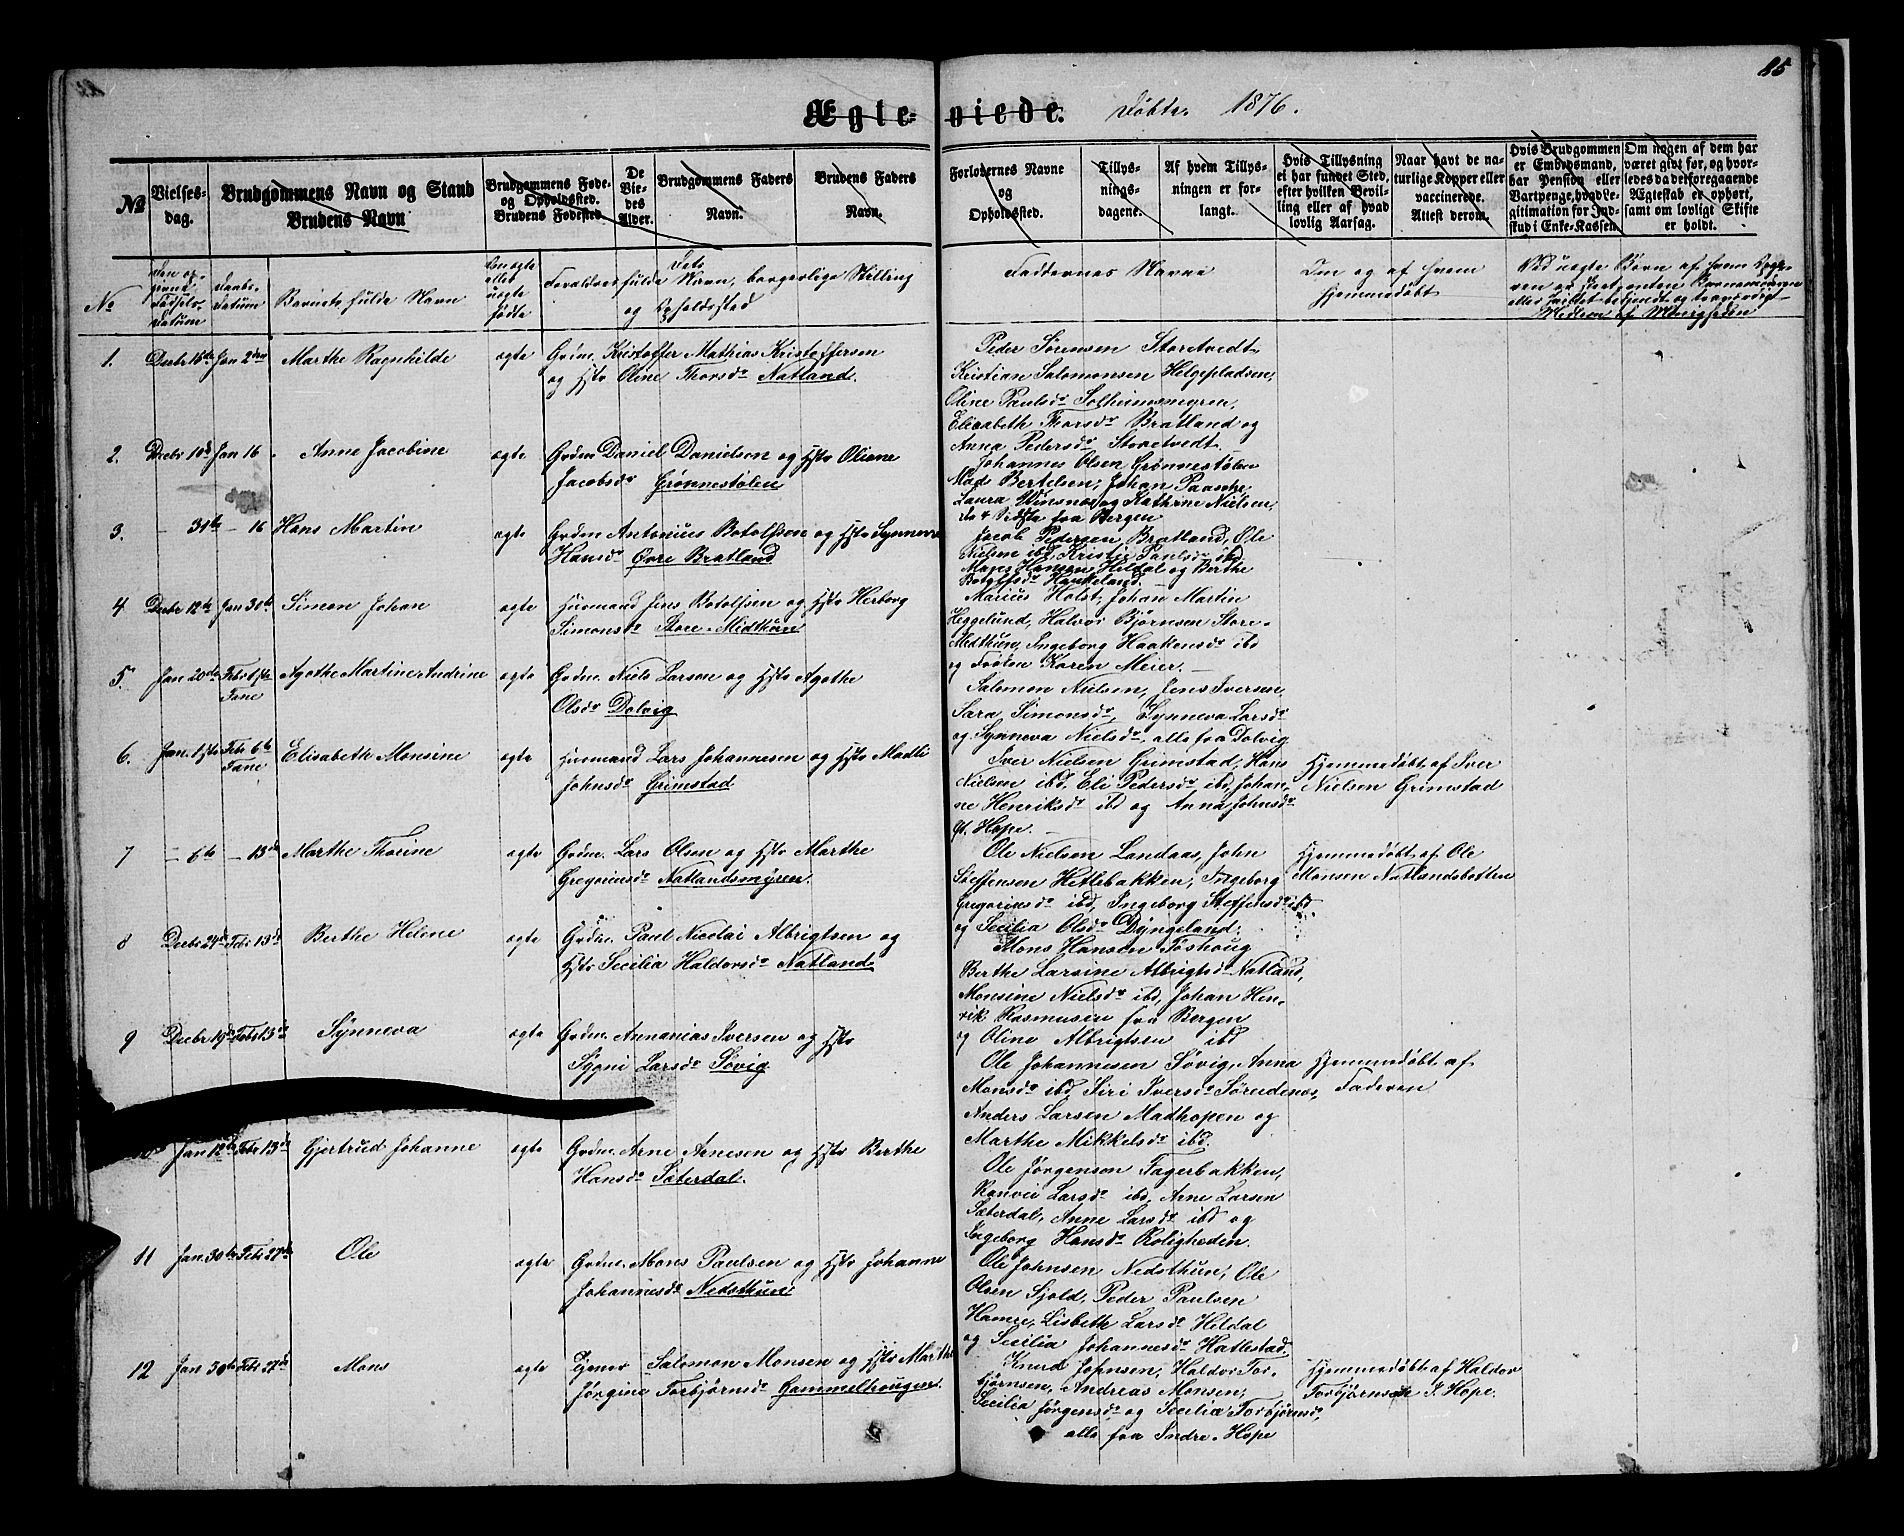 85
Ægteviede. Døbte 1876.
№ Vielsesdag. Brudgommens Navn og Stand Brudens Navn Brudgommens Fødeog Opholdssted. Brudens Fødested. De Viedes Alder. Brudgommens Faders Navn. Brudens Faders Navn. Forlovernes Navne og Opholdssted. Tillysningsdagene. Af hvem Tillysningen er forlangt. Hvis Tillysning ei har fundet Sted, efter hvilken Bevilling eller af hvad lovlig Aarsag. Naar havt de naturlige Kopper eller vaccinerede. Attest derom. Hvis Brudgommen er Embedsmand, har Pension eller Vartpenge, hvad Legitimation for Indskud i Enke-Kassen. Om nogen af dem har været gift før, og hvorledes da det foregaaende Ægteskab er ophørt, samt om lovligt Skifte er holdt.
№ Den opgivne Fødselsdatum Daabsdatum Barnets fulde Navn Om ægte eller uægte fødte Forældres fulde Navn, borgerlige Stilling og Opholdssted Faddernes Navne Om og af hvem hjemmedøbt
1. Decbr 15de Jan 2den Marthe Ragnhilde ægte Grdm. Kristoffer Mathias Kristoffersen
og Hstr Oline Thorsdr Natland.
Peder Sørensen Storetvedt
Kristian Salomonsen Helgepladsen,
Oline Paulsdr Solheimsmyren,
Elisabeth Thorsdr Bratland og
Anna Pedersdr Storetvedt
2. Decbr 10de Jan 16 Anne Jacobine ægte Grdm Daniel Danielsen og Hstr Oliane
Jacobsdr Grønnestølen
Johannes Olsen Grønnestølen
Mad Bertelsen, Johan Paasche,
Laura Winsnes og Kathrine Nielsen,
de 4 Sidste fra Bergen
3. — 31te — 16 Hans Martin ægte Grdm Antonius Botolfsen og Hstr Synneve
Hansdr Øvre Bratland
Jacob Pedersen Bratland, Ole
Nielsen ibd, Kristie Paulsdr ibd
Hansen Hildal og Berthe
Botolfsdr Haukeland.
4 Decbr 12te Jan 30te Simon Johan ægte Huusmand Jens Botolfsen og Hstr Herborg
Simonsdr Store-Midthun
Marius Holst, Johan Martin
Heggelund, Halvor Bjørnsen Store-
Midthun, Ingeborg Haakensdr ibd
og Frøken Karen Meier.
5. Jan 20de Febr Fane Agathe Martine Andrine ægte Grdm. Niels Larsen og Hstr Agathe
Olsdr Dolvig
Salomon Nielsen, Jens Iversen,
Sara Simonsdr, Synneva Larsdr
og Synneva Nielsdr, alle fra Dolvig
6. Jan. 1ste Febr 6te Fane Elisabeth Monsine ægte Huusmand Lars Johannesen og Hstr Madli
Johnsdr Grimstad
Iver Nielsen Grimstad, Hans
Nielsen ibd, Eli Pedersdr ibd, Johanne
Henriksdr ibd og Anna Johnsdr
Hope.
Hjemmedøbt af Iver
Nielsen Grimstad
7 — 6te — 13de Marthe Thorine ægte Grdm. Lars Olsen og Hstr Marthe
Gregoriusdr Natlandsmyren.
Ole Nielsen Landaas, John
Steffensen Hetlebakken, Ingeborg
Gregoriusdr ibd, Ingeborg Steffensdr ibd
og Secilia Olsdr Dyngeland.
Hjemmedøbt af Ole
Monsen Natlandsbotten
8 Decbr 24de Febr 13de Berthe Helene ægte Grdm. Paul Nicolai Albrigtsen og
Hstr Secilia Haldorsdr Natland
Mons Hansen Foshoug
Berthe Larsine Albrigtsdr Natland,
Monsine Nielsdr ibd, Johan Henrik
Rasmusen fra Bergen
og Oline Albrigtsen ibd
9 Decbr 19de Febr 13de Synneva ægte Grdm. Annanias Iversen og Hstr
Sygni Larsdr Søvig
Ole Johannesen Søvig, Anna
Monsdr ibd, Siri Iversdr Søreidenes,
Anders Larsen Madhopen og
Marthe Mikkelsdr ibd.
Hjemmedøbt af
Faderen
Jan 12te Febr 13de Gjertrud Johanne ægte Grdm. Arne Arnesen og Hstr Berthe
Hansdr Sæterdal.
Ole Jørgensen Fagerbakken,
Ranvei Larsdr ibd, Arne Larsen
Sæterdal, Anne Larsdr ibd og
Ingeborg Hansdr Roligheden.
11 Jan. 30te Febr 27de Ole ægte Grdm. Mons Paulsen og Hstr Johanne
Johannesdr Nedsthun
Ole Johnsen Nedsthun, Ole
Olsen Sjold, Peder Paulsen
Hamre, Lisbeth Larsdr Hildal
og Secilia Johannesdr Hatlestad.
12 Jan 30te Febr 27de Mons ægte Salomon Monsen og Hstr Marthe
Jørgine Torbjørnsdr Gammelhougen.
Knud Johnsen, Haldor Torbjørnsen,
Andreas Monsen,
Secilia Jørgensdr og Secilie Torbjørnsdr,
alle fra Indre-Hope
Hjemmedøbt af Haldor
Torbjørnsen I. Hope.